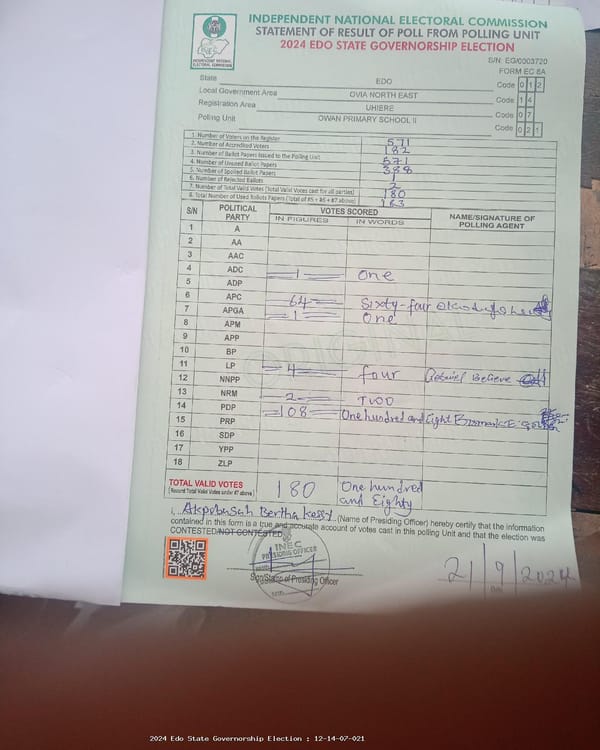 INDEPENDENT NATIONAL ELECTORAL COMMISSION
STATEMENT OF RESULT OF POLL FROM POLLING UNIT
2024 EDO STATE GOVERNORSHIP ELECTION
INEC
INDEPENDENT NATIONAL ELECTORAL COMMISSION
S/N: EG/0003720
FORM EC 8A
State EDO Code 0 1 2
Local Government Area OVIA NORTH EAST Code 1 4
Registration Area UHIERE Code 0 7
Polling Unit OWAN PRIMARY SCHOOL II Code 0 2 1
1. Number of Voters on the Register 571
2. Number of Accredited Voters 182
3. Number of Ballot Papers Issued to the Polling Unit 571
4. Number of Unused Ballot Papers 388
5. Number of Spoiled Ballot Papers 1
6. Number of Rejected Ballots 2
7. Number of Total Valid Votes (Total Valid Votes cast for all parties) 180
8. Total Number of Used Ballots Papers (Total of #5 + #6 + #7 above) 183
S/N POLITICAL PARTY VOTES SCORED NAME/SIGNATURE OF POLLING AGENT
IN FIGURES IN WORDS
1 A
2 AA
3 AAC
4 ADC 1 One
5 ADP
6 APC 64 Sixty-four
7 APGA 1 One
8 APM
9 APP
10 BP
11 LP 4 four Believe
12 NNPP
13 NRM 2 Two
14 PDP 108 One hundred and Eight
15 PRP
16 SDP
17 YPP
18 ZLP
TOTAL VALID VOTES 180 One hundred and Eighty
[Record Total Valid Votes under #7 above]
I, Bertha (Name of Presiding Officer) hereby certify that the information
contained in this form is a true and accurate account of votes cast in this polling Unit and that the election was
CONTESTED/NOT CONTESTED
INEC
PRESIDING OFFICER
Sign/Stamp of Presiding Officer
21/9/2024
2024 Edo State Governorship Election : 12-14-07-021